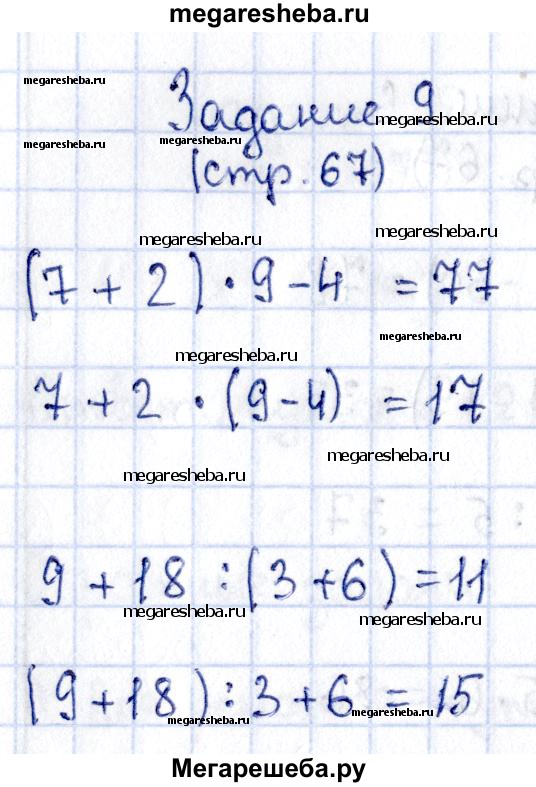 megaresheba.ru
megaresheba.ru
Задание 9
megaresheba.ru
megaresheba.ru
megaresheba.ru
(стр. 67)
megaresheba.ru
megaresheba.ru
(7 + 2) · 9 - 4 = 77
megaresheba.ru
megaresheba.ru
7 + 2 · (9 - 4) = 17
megaresheba.ru
megaresheba.ru
9 + 18 : (3 + 6) = 11
megaresheba.ru
megaresheba.ru
(9 + 18) : 3 + 6 = 15
megaresheba.ru
megaresheba.ru
Мегарешеба.ру